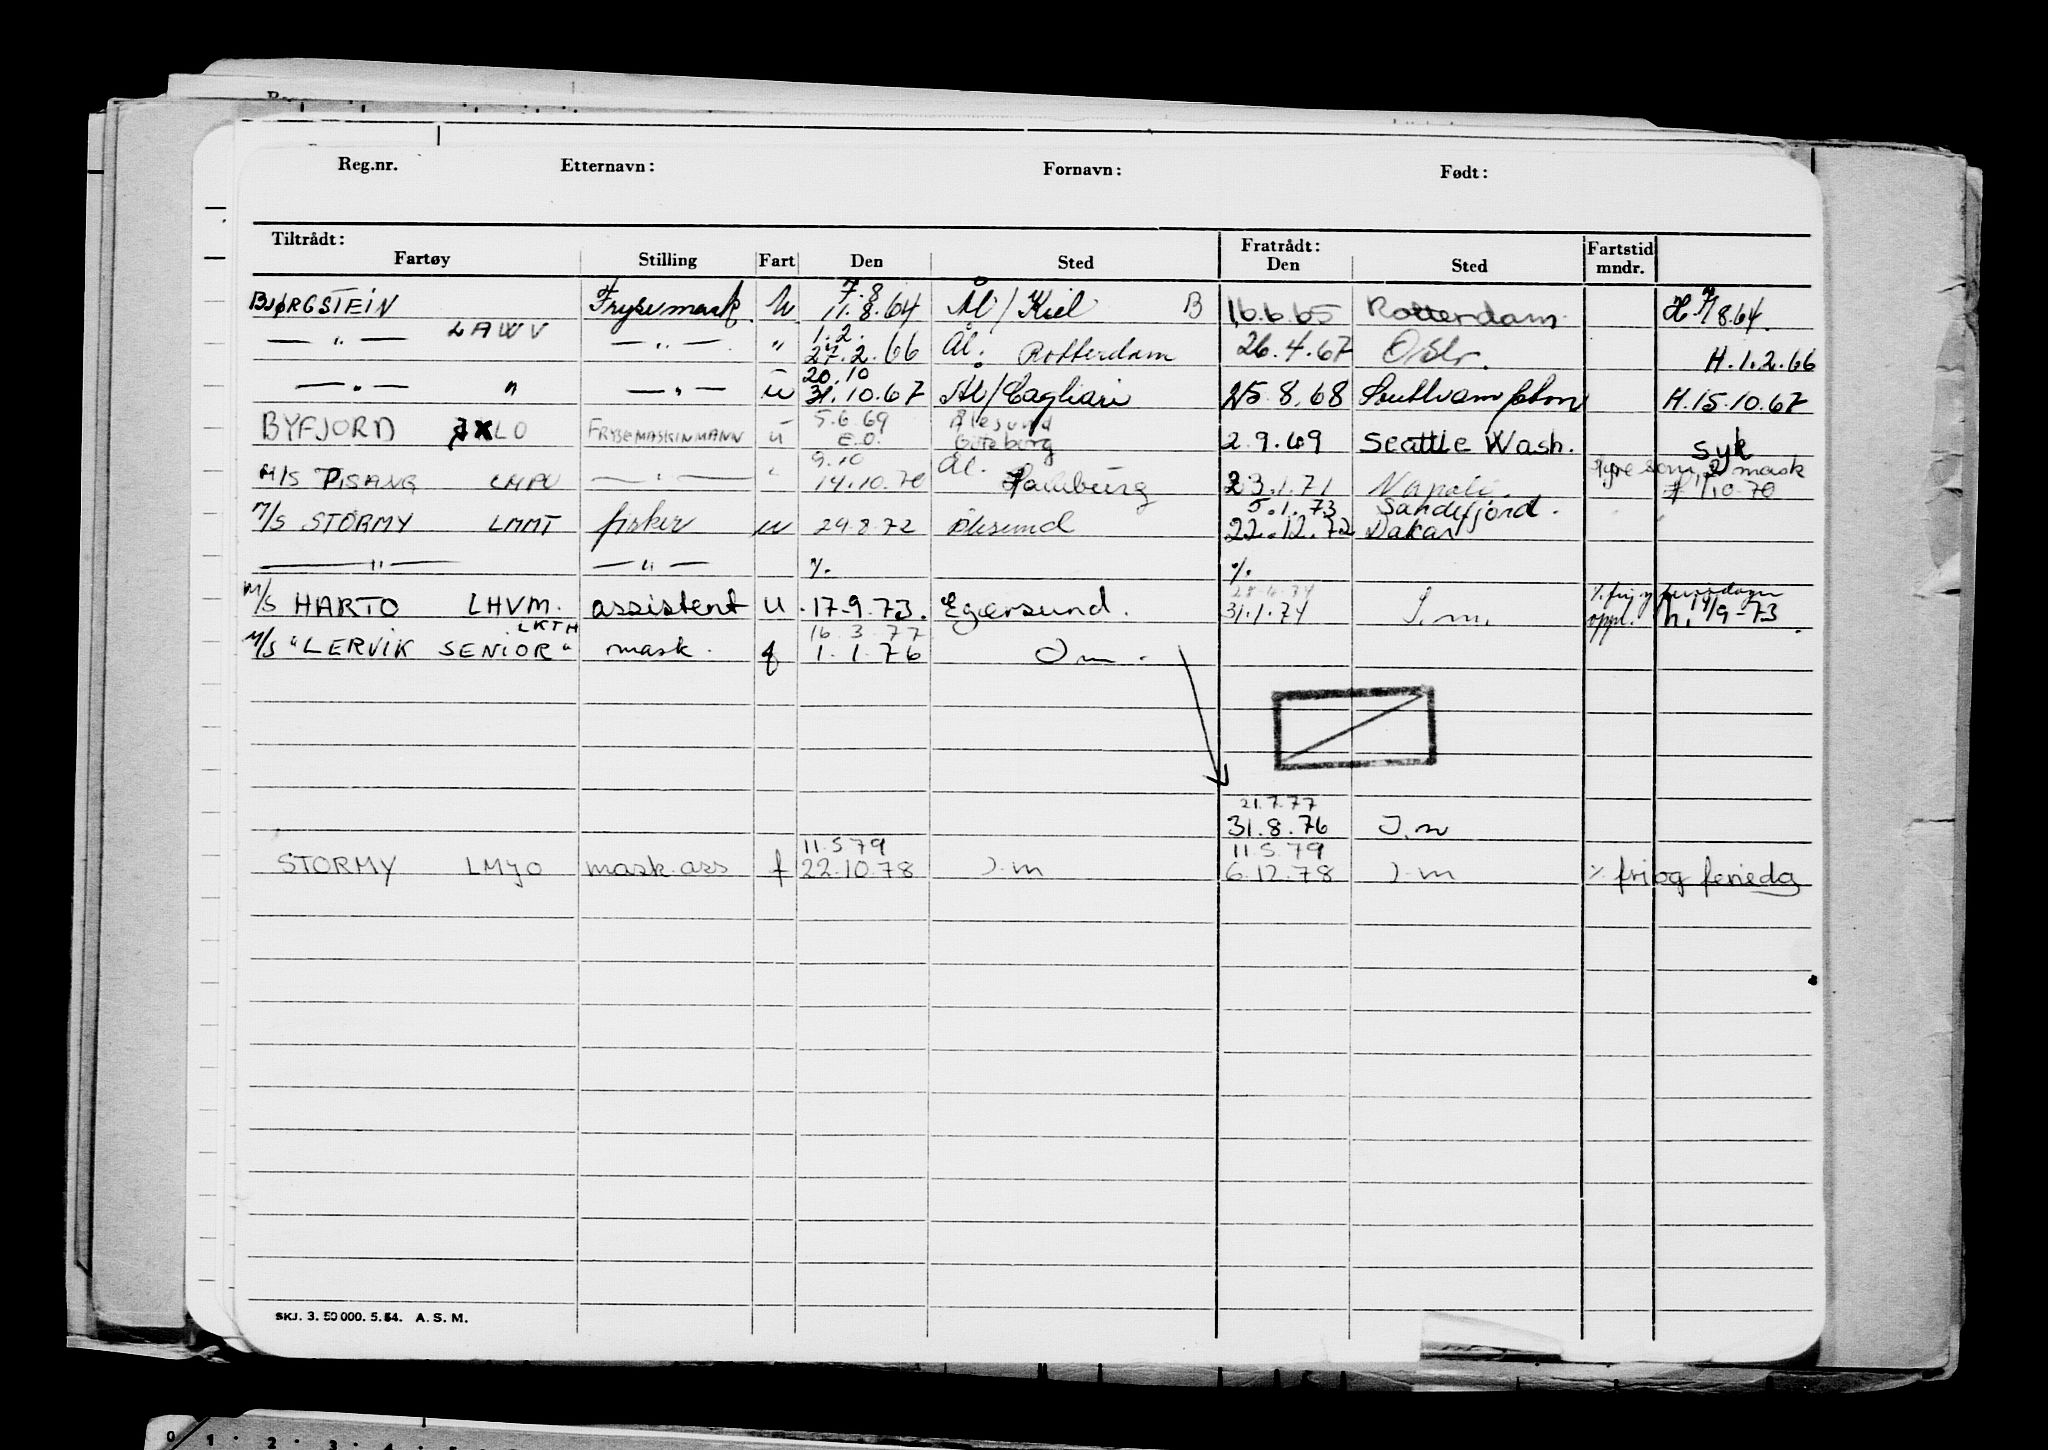 Reg.nr. Etternavn: Fornavn: Født:
Tiltrådt: Fratrådt: Fartstid
Fartøy Stilling Fart Den Sted Den Sted mndr.
7.8
BJØRGSTEIN Frysemask. U 11.8.64 Ål/Kiel B 16.6.65 Rotterdam H. 7/8.64.
LAWV 1.2.
— " — — " — " 27.2.66 Ål. Rotterdam 26.4.67 Oslo. H.1.2.66
20.10
— " — " — " — U 31.10.67 Ål/Cagliari 25.8.68 Southampton H.15.10.67
5.6.69 Ålesund
BYFJORD JXLO FRYSEMASKINMANN U E.O. Göteborg 2.9.69 Seattle Wash. syk
9.10 Ål. Hyre som 2 mask
M/S PISANG LMPU — " — " 14.10.70 Hamburg 23.1.71 Napoli. 1.10.70
5.1.73 Sandefjord.
M/S STORMY LMMT fisker U 29.8.72 Ålesund 22.12.72 Dakar
— " — — " — %. %.
28.4.74 %. fri og feriedager
M/S HARTO LHVM. assistent U 17.9.73. Egersund. 31.1.74 I.m. oppl. h. 14/9-73.
LKTH 16.3.77
M/S "LERVIK SENIOR" mask. f 1.1.76 I m.
21.7.77
31.8.76 I.m
11.5.79 11.5.79
STORMY LMYO mask.ass f 22.10.78 I.m 6.12.78 I.m % fri og feriedg
SKJ. 3. 50 000. 5.54. A.S.M.
0 1 2 3 4 5